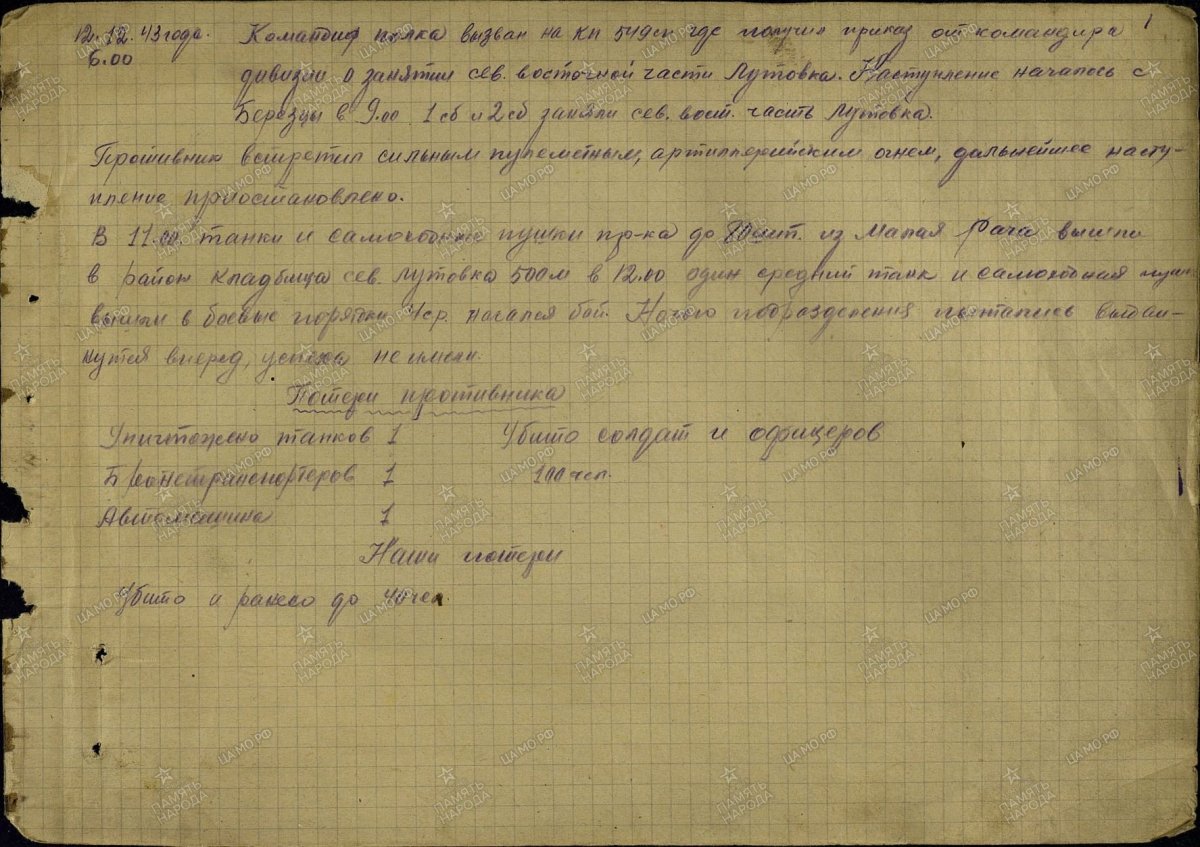 1
12.12.43 года. Командир полка вызван на КП 549сп где получил приказ от командира
6.00 дивизии о занятии сев. восточной части Лутовка. Наступление началось с
Березцы в 9.00 1 сб и 2 сб заняли сев. вост. часть Лутовка.
Противник встретил сильным пулеметным, артиллерийским огнем, дальнейшее насту-
пление приостановлено.
В 11.00. танки и самоходные пушки пр-ка до шт. из Малая Рача вышли
в район кладбища сев. Лутовка 500м в 12.00 один средний танк и самоходная
вышли в боевые порядки начался бой. Ночью подразделения пытались выдви-
нутся вперед, успеха не имели.
Потери противника
Уничтожено танков 1 Убито солдат и офицеров
Бронетранспортеров 1 100 чел.
Автомашина 1
Наши потери
Убито и ранено до 40 чел.
ПАМЯТЬ НАРОДА
ЦАМО.РФ